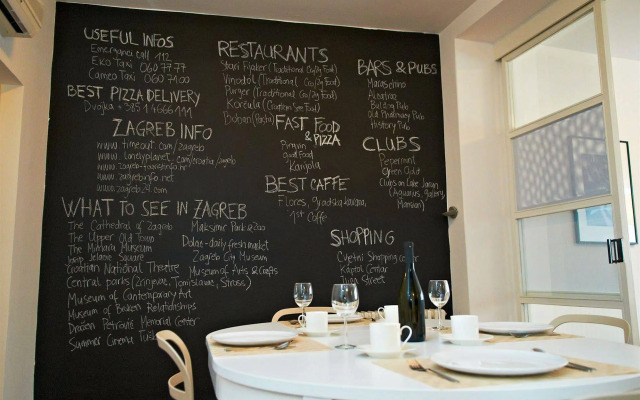 USEFUL INFOS
Emergency call 112
Eko Taxi 060 77 77
Cameo Taxi 060 71 00
BEST PIZZA DELIVERY
Dvojka +385 1 4666 111
ZAGREB INFO
www.timeout.com/zagreb
www.lonelyplanet.com/croatia/zagreb
www.zagreb-touristinfo.hr
www.zagrebinfo.net
www.inzagreb.com
WHAT TO SEE IN ZAGREB
The Cathedral of Zagreb
The Upper Old Town
The Mimara Museum
Josip Jelacic Square
Croatian National Theatre
Central parks (Zrinjevac, Tomislavac, Stross)
Museum of Contemporary Art
Museum of Broken Relationships
Drazen Petrovic Memorial Center
Summer Cinema
Maksimir Park & Zoo
Dolac-daily fresh market
Zagreb City Museum
Museum of Arts & Crafts
RESTAURANTS
Stari Fijaker (Traditional Cro/Zg Food)
Vinodol (Traditional Cro/Zg Food)
Purger (Traditional Cro/Zg Food)
Korčula (Croatian Sea Food)
Boban (Pasta)
FAST FOOD
& PIZZA
Pingvin
Good Food
Karijola
BEST CAFFE
Flores, Gradska kavana,
1st Caffe
SHOPPING
Cvjetni Shopping
Kaptol Centar
Ilica Street
BARS & PUBS
Maraschino
Alcatraz
Bulldog Pub
Old Pharmacy Pub
History Pub
CLUBS
Pepermint
Green Gold
Clubs on Lake Jarun
(Aquarius, Gallery,
Mansion)